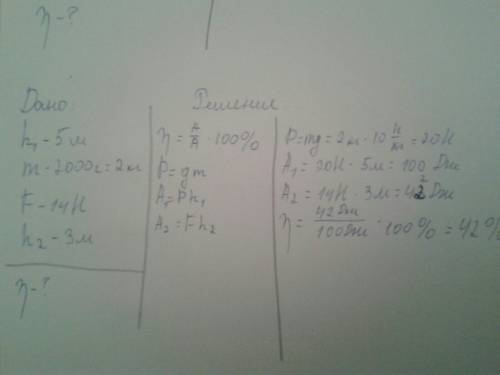 η-?
Дано:
h₁-5м
m-2000г=2кг
F-14Н
h₂-3м
η-?
Решение
η=A/A·100%
P=gm
A₁=Ph₁
A₂=Fh₂
P=mg=2кг·10 Н/кг=20Н
A₁=20Н·5м=100Дж
A₂=14Н·3м=42Дж
η=42Дж/100Дж·100%=42%